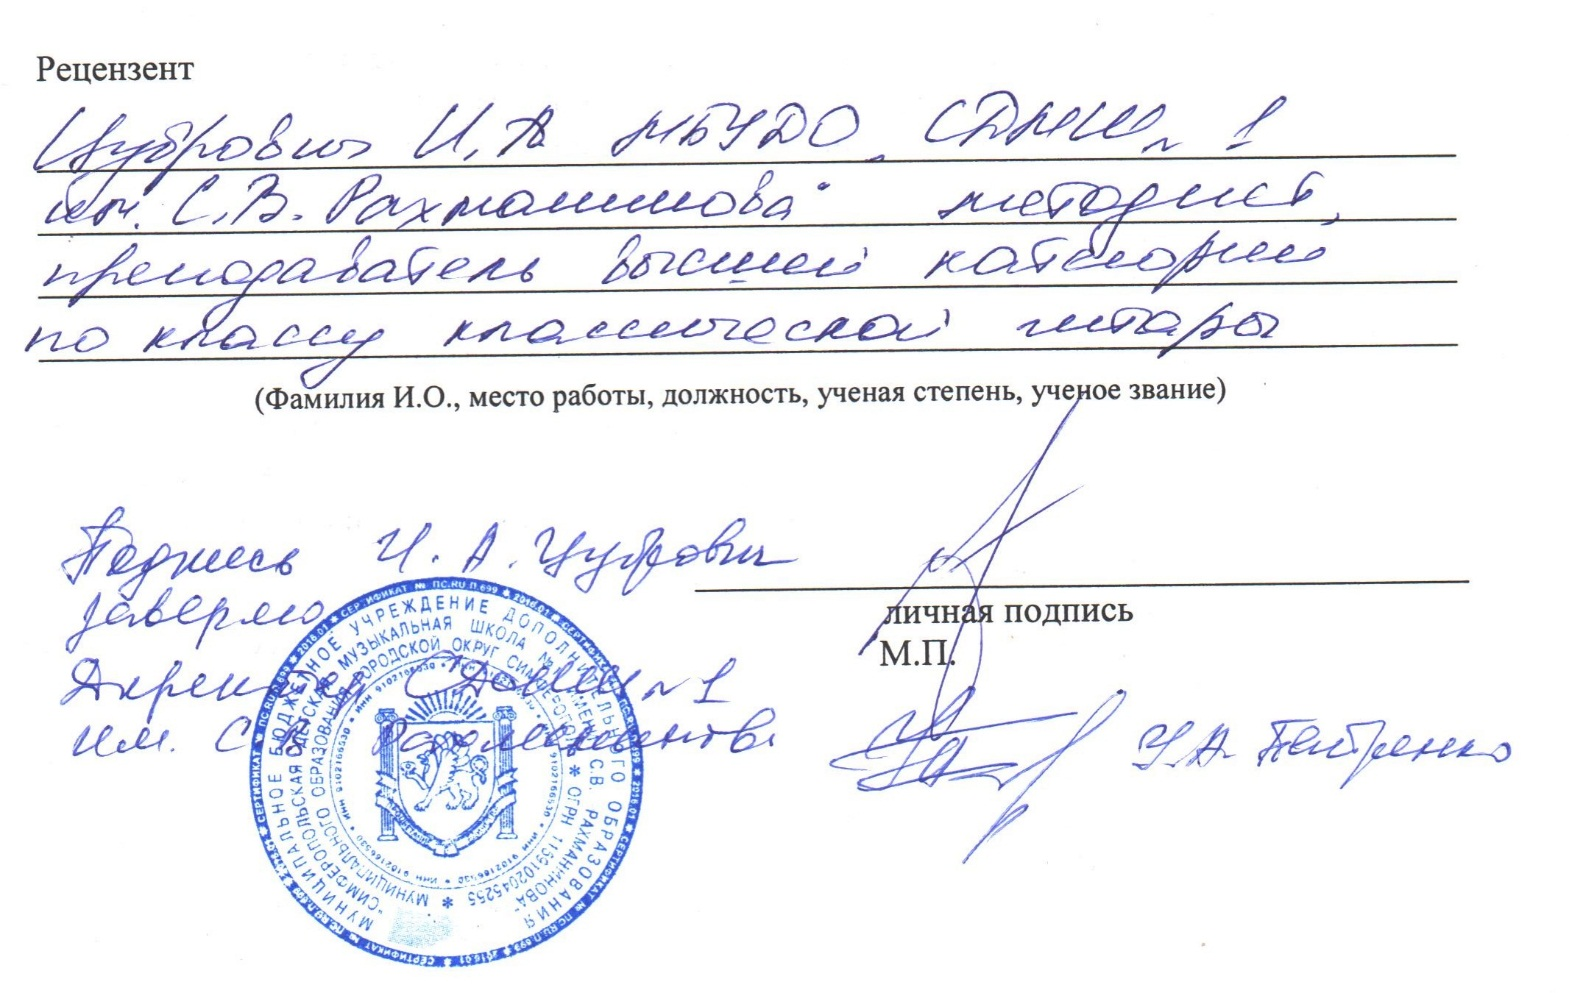 Рецензент
Цубрович И.А МБУДО „СДМШ № 1
им. С.В. Рахманинова" методист,
преподаватель высшей категории
по классу классической гитары
(Фамилия И.О., место работы, должность, ученая степень, ученое звание)
Подпись И. А. Цубрович
заверяю
личная подпись
М.П.
Директор СДМШ №1
им. С.В. Рахманинова
У.А. Петренко
МУНИЦИПАЛЬНОЕ БЮДЖЕТНОЕ УЧРЕЖДЕНИЕ ДОПОЛНИТЕЛЬНОГО ОБРАЗОВАНИЯ
"СИМФЕРОПОЛЬСКАЯ ДЕТСКАЯ МУЗЫКАЛЬНАЯ ШКОЛА №1 ИМЕНИ С.В. РАХМАНИНОВА"
МУНИЦИПАЛЬНОГО ОБРАЗОВАНИЯ ГОРОДСКОЙ ОКРУГ СИМФЕРОПОЛЬ * ОГРН 1159102045255 *
ИНН 9102166530
СЕРТИФИКАТ № ПС.RU.П.699 * 2016.01